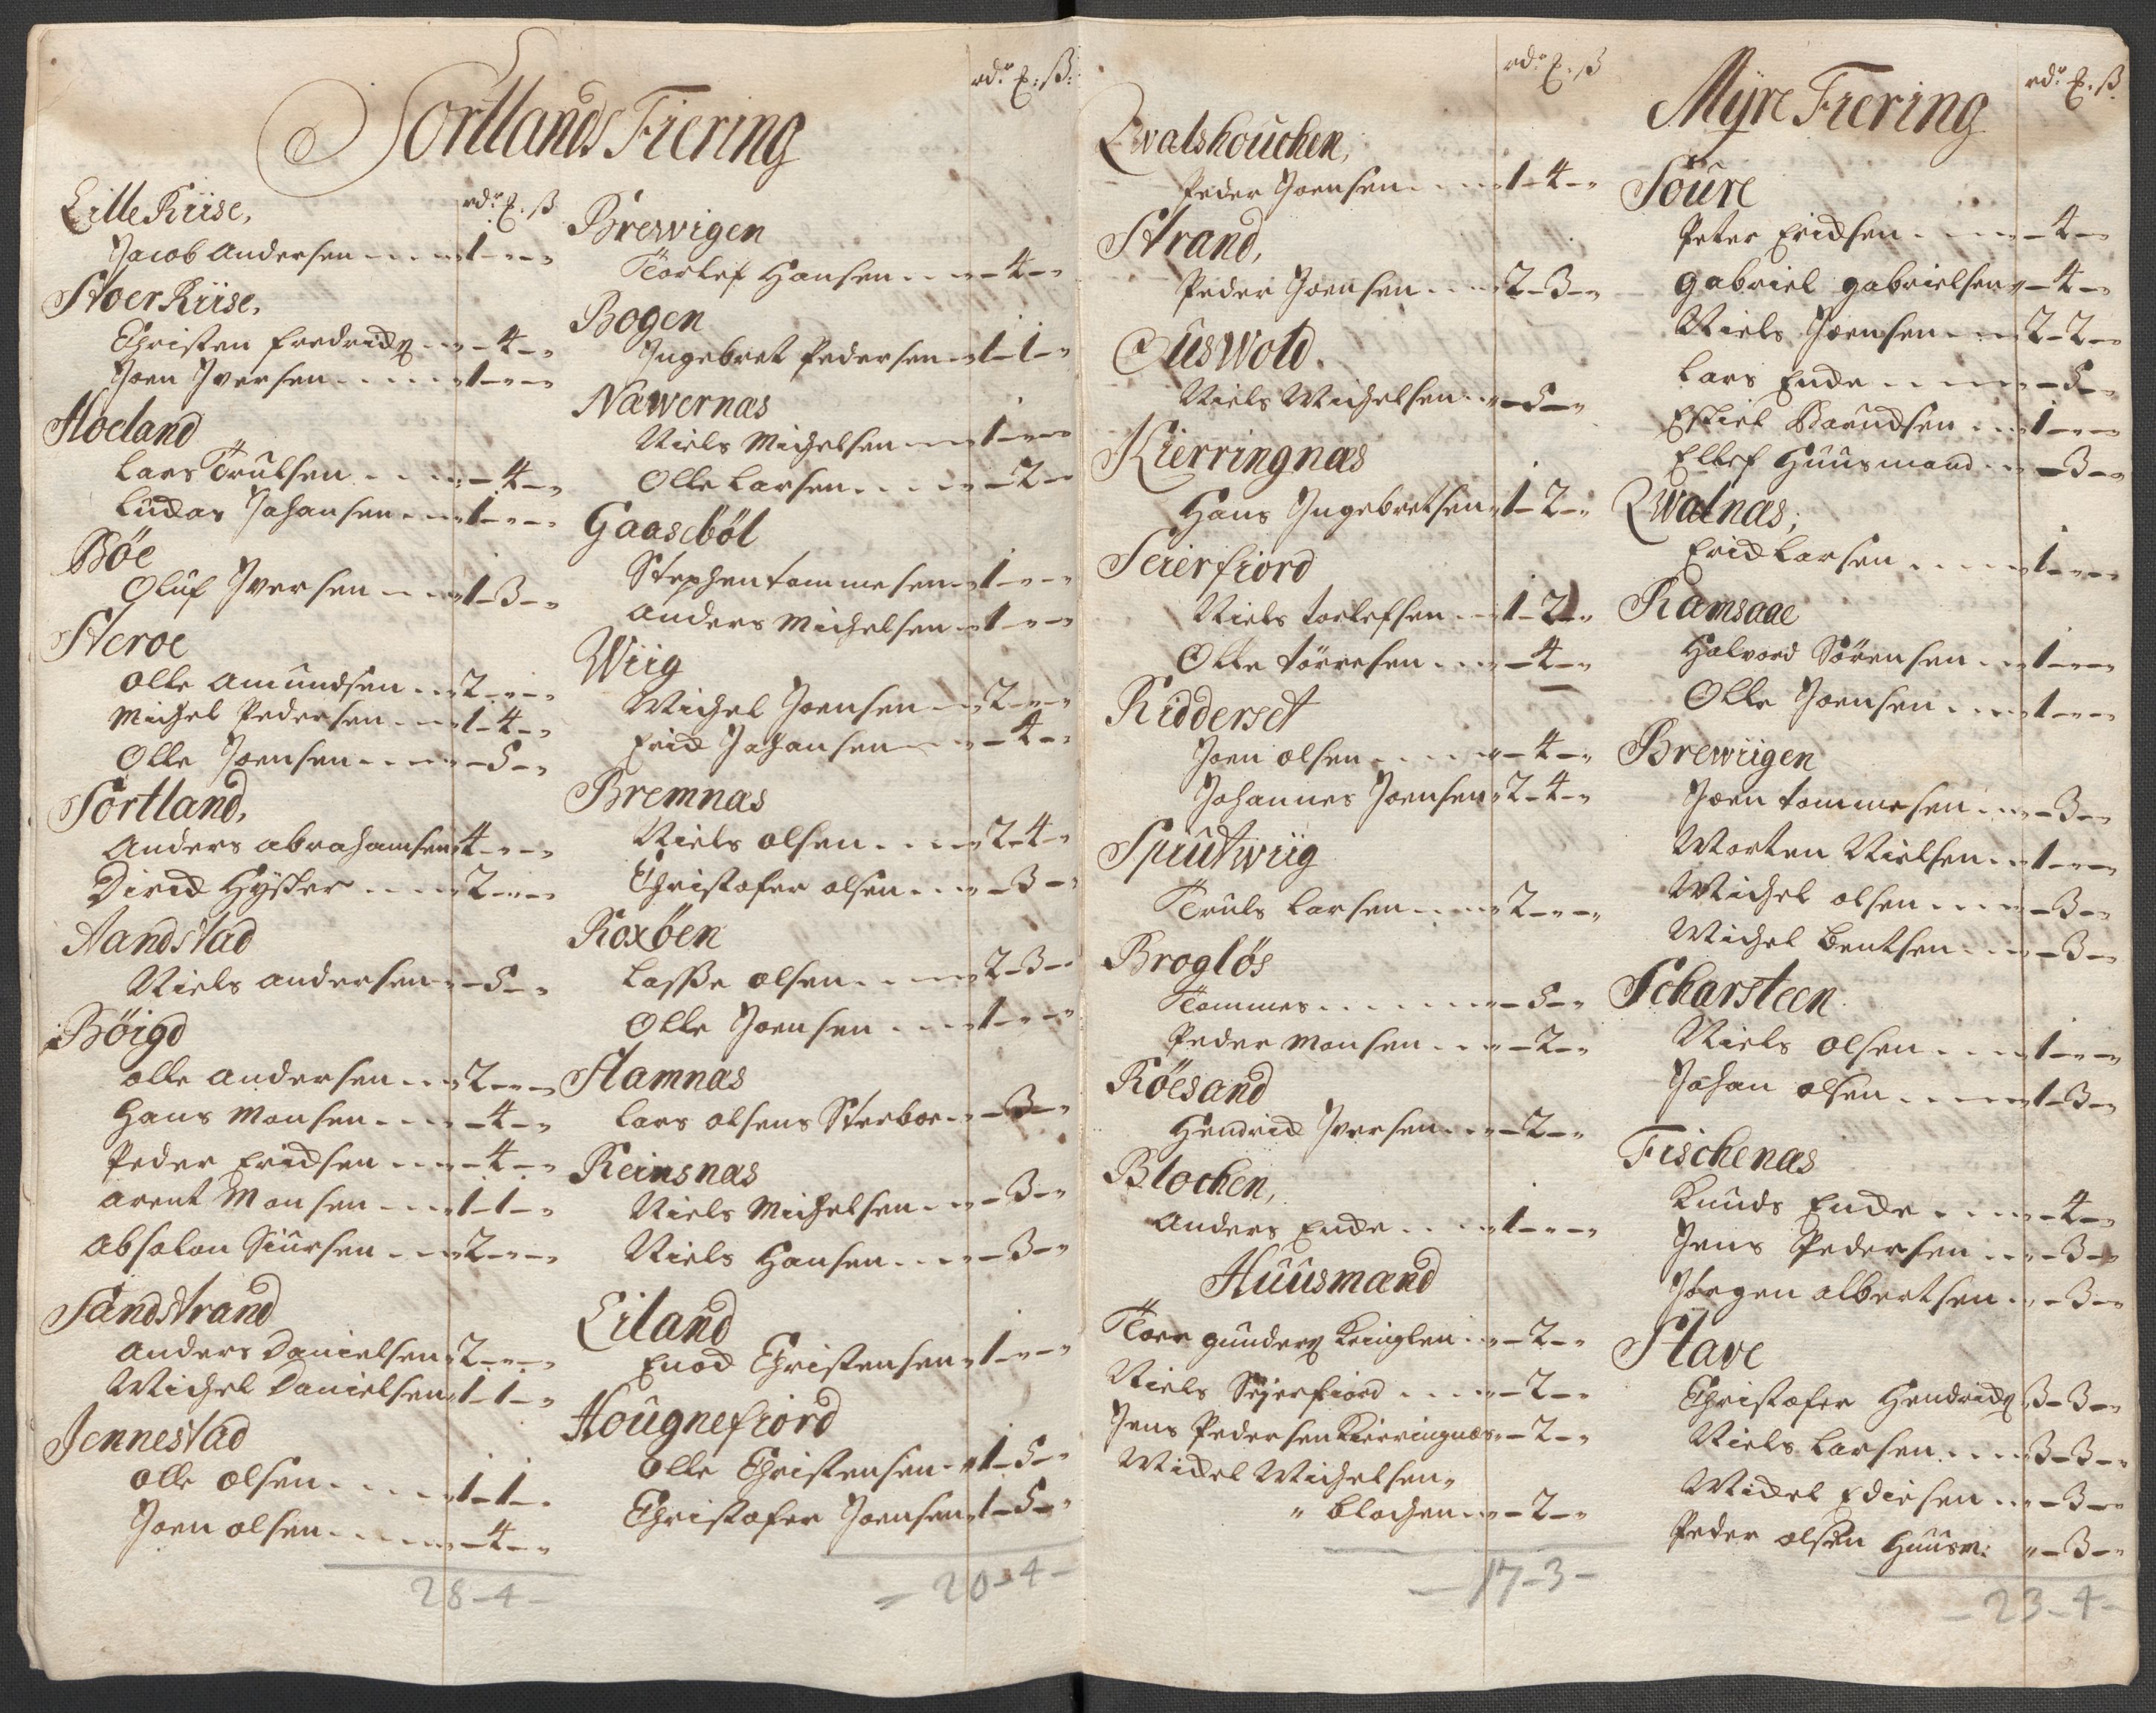 Sortlands Fiering
rdr. E: ß:
Lille Kiise,
rdr. E. ß
Jacob Andersen - - - - " 1 - " - "
Stoer Kiise,
Christen Fredrichs - - " - 4 - "
Joen Iversen - - - - - " 1 - " - "
Hoeland
Lars Trulsen - - - - " - 4 - "
Ludas Johansen - - " 1 - " - "
Bøe
Oluf Iversen - - - " 1 - 3 - "
Steroe
Olle Amundsen - - " 2 - " - "
Michel Pedersen - - " 1 - 4 - "
Olle Joensen - - - - " - 5 - "
Sortland,
Anders Abrahamsen " 4 - " - "
Dirick Hysker - - - - " 2 - " - "
Aandstad
Niels Andersen - " - 5 - "
Bøigd
Olle Andersen - - - " 2 - " - "
Hans Monsen - - - " - 4 - "
Peder Ericksen - - " - 4 - "
Arent Monsen - - - " 1 - 1 - "
Absolon Siursen - - " 2 - " - "
Sandstrand
Anders Danielsen " 2 - " - "
Michel Danielsen " 1 - 1 - "
Jennestad
Olle Olsen - - - - - " 1 - 1 - "
Joen Olsen - - - - - " - 4 - "
28 - 4 -
Brewigen
Torlef Hansen - - - " - 4 - "
Bogen
Ingebret Pedersen - " 1 - 1 - "
Nawernæs
Niels Michelsen - - " 1 - " - "
Olle Larsen - - - - " - 2 - "
Gaasebøl
Stephen Tommesen - " 1 - " - "
Anders Michelsen - " 1 - " - "
Wiig
Michel Joensen - - " 2 - " - "
Erick Johansen - - " - 4 - "
Bremnæs
Niels Olsen - - - - " 2 - 4 - "
Christofer Olsen - - " - 3 - "
Roxøen
Lasse Olsen - - - - " 2 - 3 - "
Olle Joensen - - - " 1 - " - "
Stamnæs
Lars Olsens Sterboe - " - 3 - "
Reinsnæs
Niels Michelsen - - " - 3 - "
Niels Hansen - - - " - 3 - "
Eiland
Enod Christensen " 1 - " - "
Hougnefiord
Olle Christensen - " 1 - 5 - "
Christofer Joensen " 1 - 5 - "
20 - 4 -
rdr. E. ß
Qwalshouchen,
Peder Joensen - - - - " 1 - 4 - "
Strand,
Peder Joensen - - - " 2 - 3 - "
Ouswold.
Niels Michelsen - - " - 5 - "
Kierringnæs
Hans Ingebretsen " 1 - 2 - "
Seierfiord
Niels Torlefsen - - " 1 - 2 - "
Olle Tørresen - - - " - 4 - "
Ridderset
Joen Olsen - - - - - " - 4 - "
Johannes Joensen " 2 - 4 - "
Sprutwiig
Truls Larsen - - - - " 2 - " - "
Brogløs
Tommes - - - - - - " - 5 - "
Peder Monsen - - - " - 2 - "
Røesand
Hendrick Iversen - - " - 2 - "
Blochen,
Anders Ende - - - - " 1 - " - "
Huusmænd
Tore Gunders Kringlen - " - 2 - "
Niels Sejerfiord - - - - " - 2 - "
Jens Pedersen Kierringnæs " - 2 - "
Mickel Michelsen "
" Blochen - " - 2 - "
17 - 3 -
Myre Fiering
rdr. E. ß.
Soure
Peter Ericksen - - - - " - 4 - "
Gabriel Gabrielsen " - 4 - "
Niels Joensen - - - " 2 - 2 - "
Lars Ende - - - - - " - 5 - "
Eskiel Baoudsen - - " 1 - " - "
Ellef Huusmand - - " - 3 - "
Qwalnæs,
Erick Larsen - - - - " 1 - " - "
Ramsaae
Halvord Sørensen - - " 1 - " - "
Olle Joensen - - - - " 1 - " - "
Brewiigen
Joen Tommesen - - " - 3 - "
Morten Nielsen - - " 1 - " - "
Michel Olsen - - - - " - 3 - "
Michel Bentsen - - - " - 3 - "
Scharsteen
Niels Olsen - - - - " 1 - " - "
Johan Olsen - - - - " 1 - 3 - "
Fischenæs
Knuds Ende - - - - " - 4 - "
Jens Pedersen - - " - 3 - "
Jørgen Albertsen - " - 3 - "
Stave
Christofer Hendrichs " 3 - 3 - "
Niels Larsen - - - - " 3 - 3 - "
Mickel Ediesen - - " - 3 - "
Peder Olsen Huusm: " - 3 - "
- 23 - 4 -